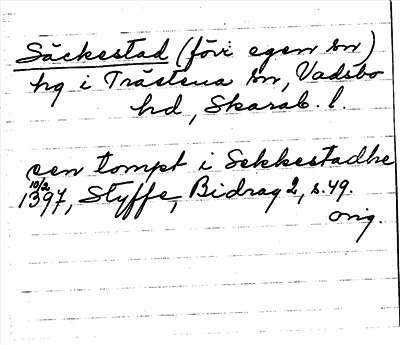 Säckestad (förr egen sn)
hg i Trästena sn, Vadsbo
hd, Skarab. l.
een tompt i Sekkestadhe
10/2
1397, Styffe, Bidrag 2, s. 49.
orig.